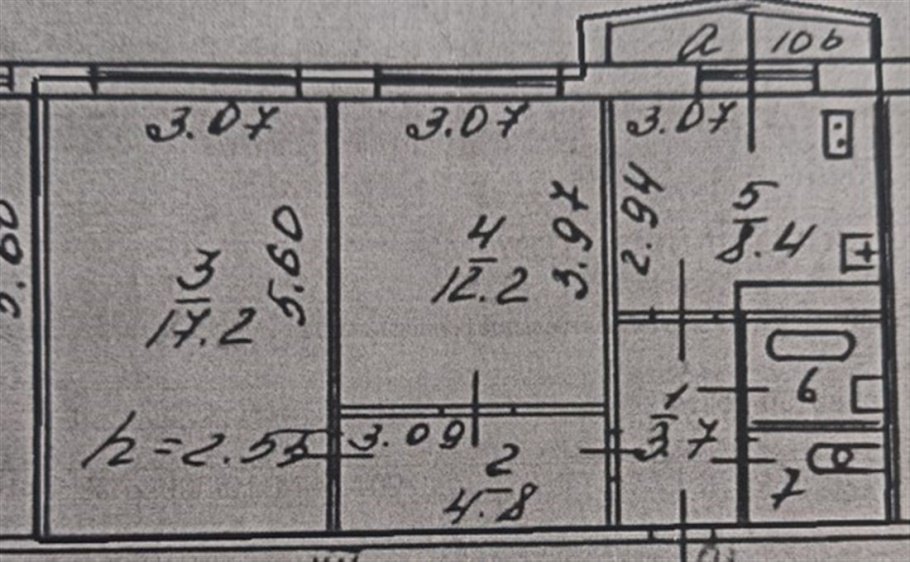 а 10б
3.07 3.07 3.07
5.60
3
17.2
5.60
4
12.2
3.97
2.94
5
8.4
h=2.55
3.09
2
4.8
1
3.7
6
7